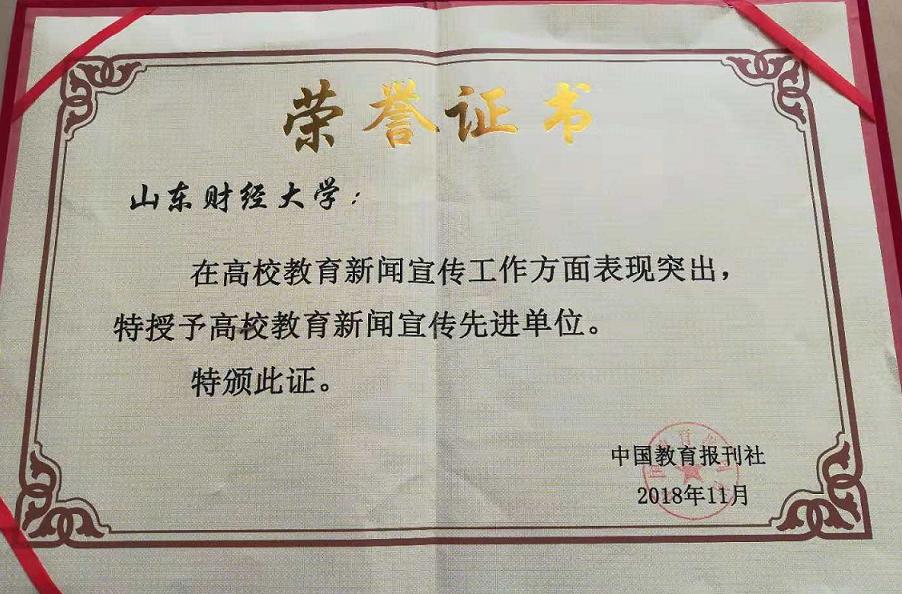 荣誉证书
山东财经大学：
在高校教育新闻宣传工作方面表现突出，
特授予高校教育新闻宣传先进单位。
特颁此证。
中国教育报刊社
2018年11月